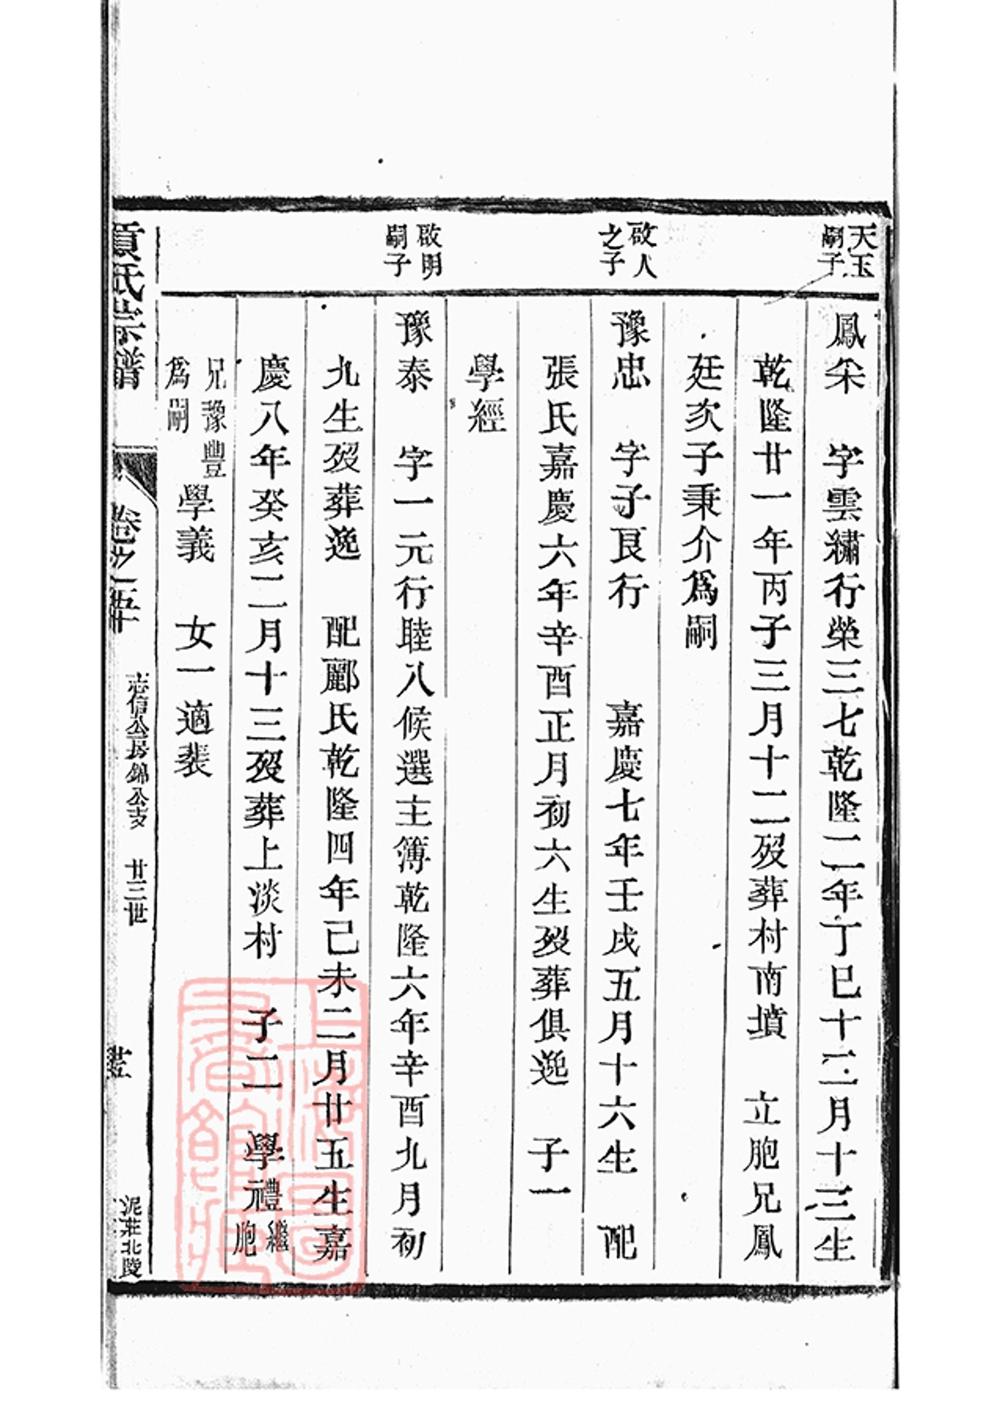 天玉
嗣子
鳳尖 字雲繡行榮三七乾隆二年丁巳十二月十三生
乾隆廿一年丙子三月十二歿葬村南墳 立胞兄鳳
廷次子秉介為嗣
啟人
之子
豫忠 字子艮行 嘉慶七年壬戌五月十六生 配
張氏嘉慶六年辛酉正月初六生歿葬俱逸 子一
學經
啟明
嗣子
豫泰 字一元行睦八候選主簿乾隆六年辛酉九月初
九生歿葬逸 配酈氏乾隆四年己未二月廿五生嘉
慶八年癸亥二月十三歿葬上淡村 子二 學禮繼胞
兄豫豐為嗣 學義 女一適裴
宗譜
卷之
志信公房錦公支 廿三世
泥莊北陵
上海圖書館藏